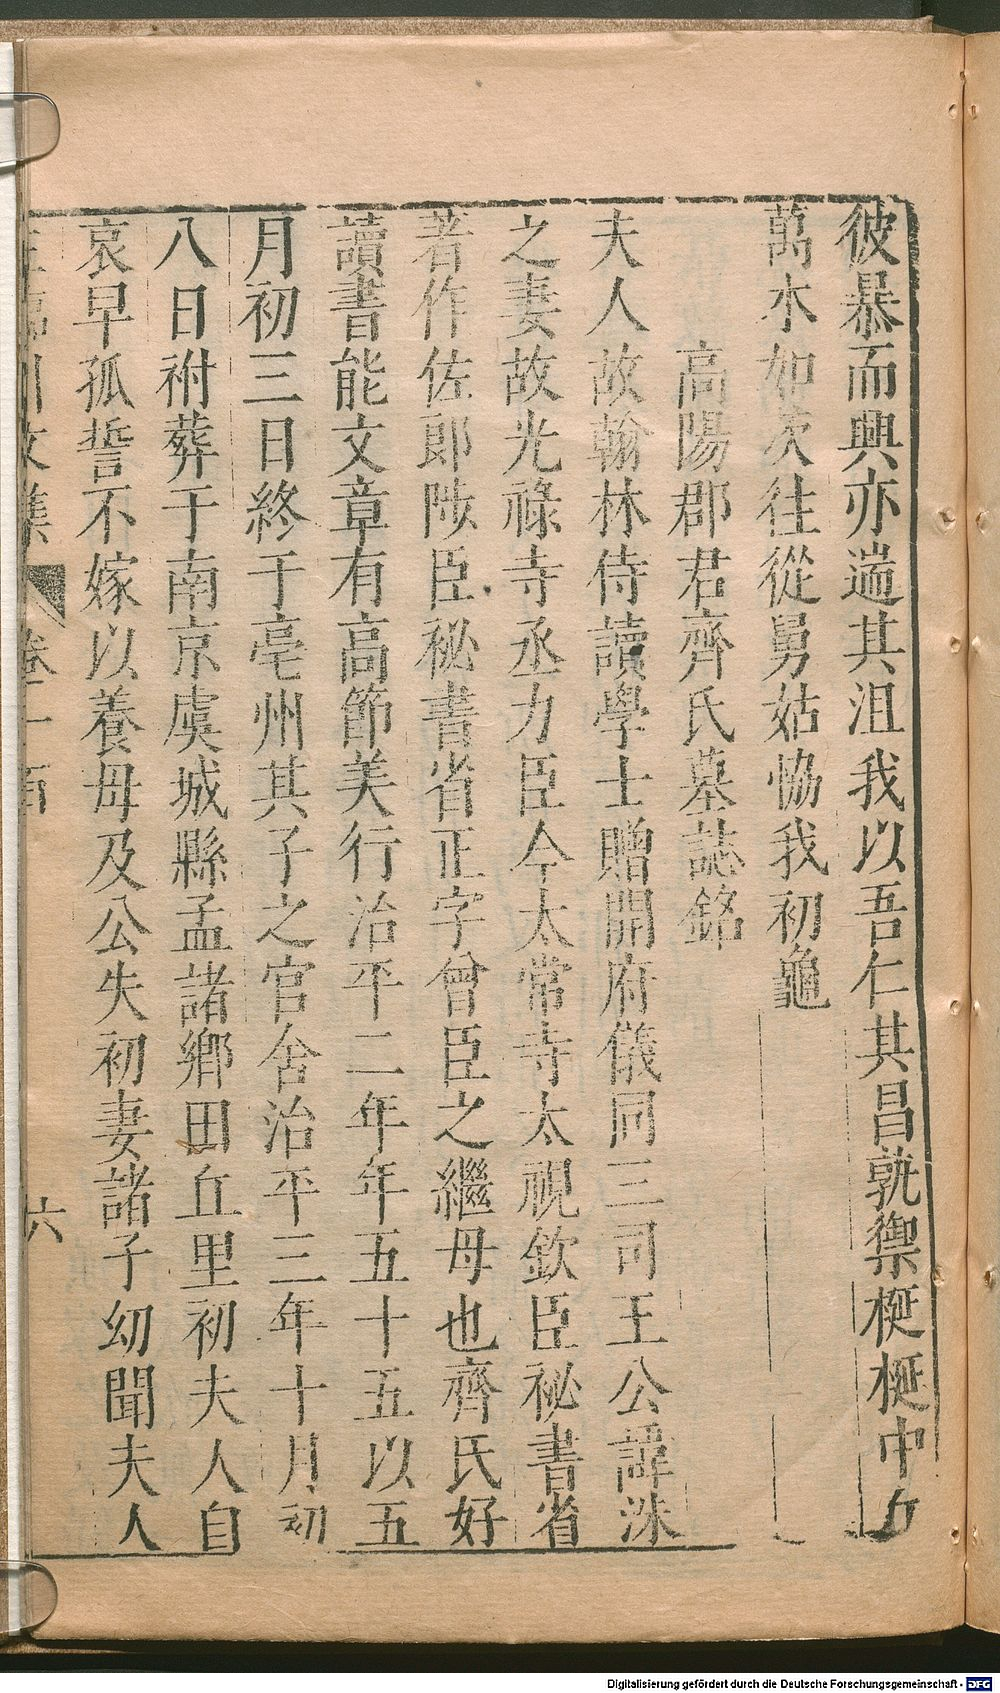 彼暴而興亦遄其沮我以吾仁其昌孰禦梴梴中
萬水如茨往從舅姑恊我初龜
高陽郡君齊氏墓誌銘
夫人故翰林侍讀學士贈開府儀同三司王公諱洙
之妻故光祿寺丞力臣今太常寺太視欽臣秘書省
著作佐郎陟臣秘書省正字曾臣之繼母也齊氏好
讀書能文章有高節美行治平二年年五十五以五
月初三日終于亳州其子之官舍治平三年十月初
八日祔葬于南京虞城縣孟諸鄉田丘里初夫人自
哀早孤誓不嫁以養母及公失初妻諸子幼聞夫人
川文集 卷一百 六
Digitalisierung gefördert durch die Deutsche Forschungsgemeinschaft - DFG